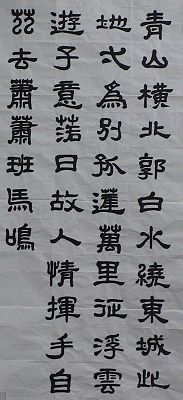 青山橫北郭白水繞東城此
地弌為別孤蓬萬里征浮雲
遊子意落日故人情揮手自
茲去蕭蕭班馬鳴